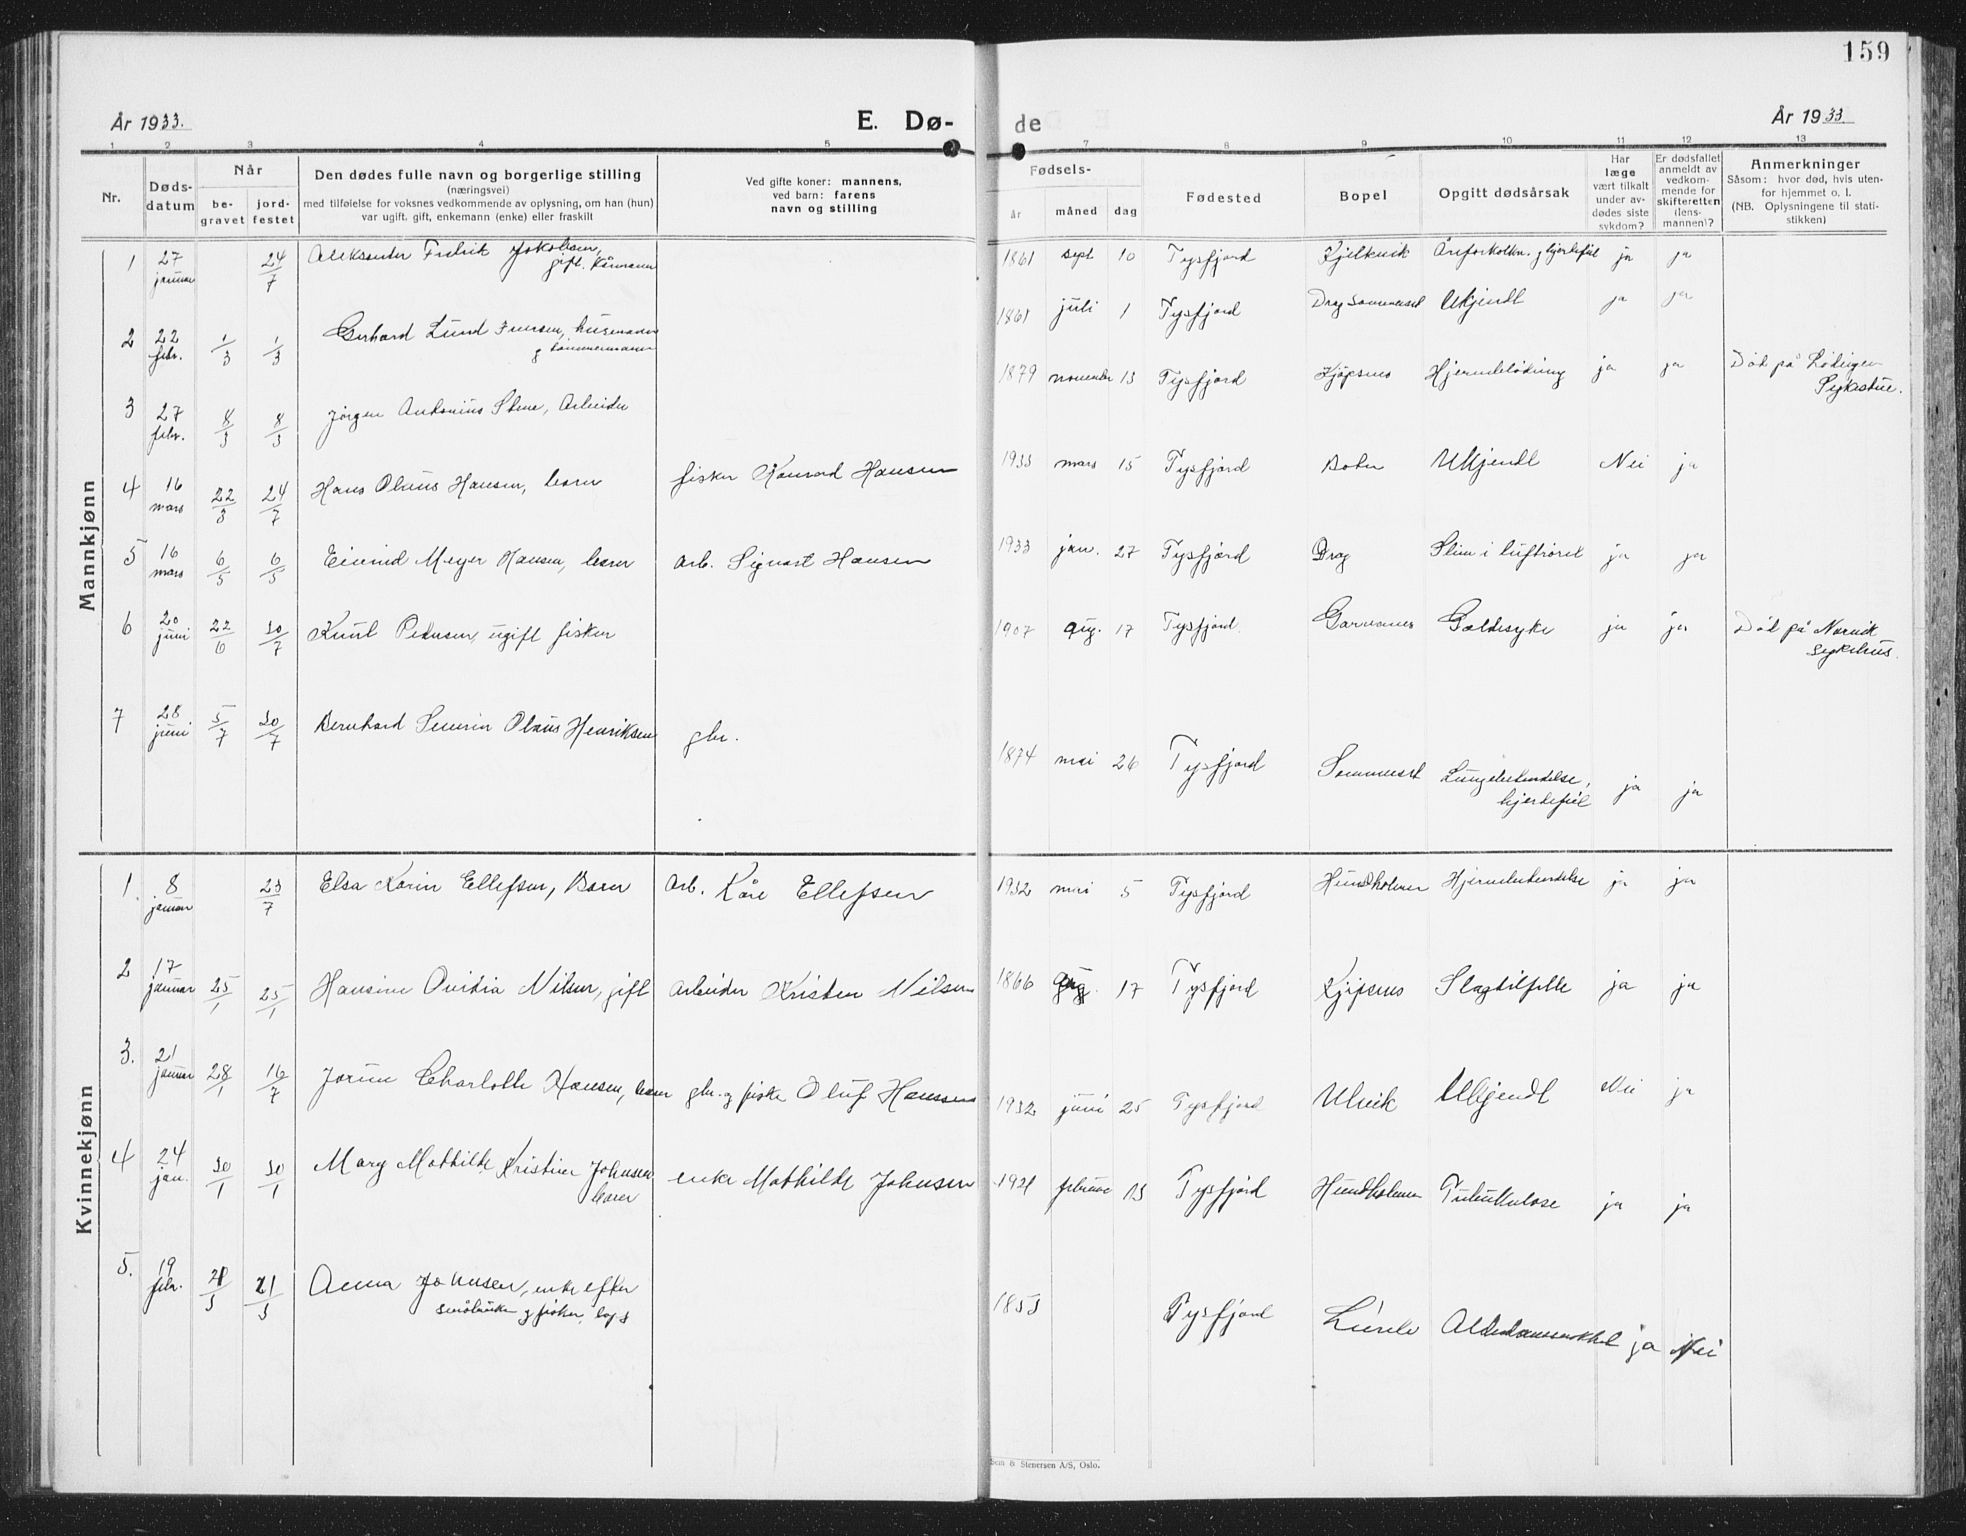 159
År 1933.
E. Dø-
de
År 1933.
1 2 3 4 5 7 8 9 10 11 12 13
Nr.
Døds-
datum
Når
be-
gravet
jord-
festet
Den dødes fulle navn og borgerlige stilling
(næringsvei)
med tilføielse for voksnes vedkommende av oplysning, om han (hun)
var ugift, gift, enkemann (enke) eller fraskilt
Ved gifte koner: mannens,
ved barn: farens
navn og stilling
Fødsels-
år
måned
dag
Fødested
Bopel
Opgitt dødsårsak
Har
læge
vært tilkalt
under av-
dødes siste
sykdom?
Er dødsfallet
anmeldt av
vedkom-
mende for
skifteretten
(lens-
mannen)?
Anmerkninger
Såsom: hvor død, hvis uten-
for hjemmet o. l.
(NB. Oplysningene til stati-
stikken)
Mannkjønn
1 27 januar 24/7 Aleksander Fredrik Jakobsen, gift. kårmann 1861 sept 10 Tysfjord Kjelkvik Åreforkalkn. g hjertefeil ja ja
2 22 febr. 1/3 1/3 Gerhard Lund Iversen, husmann g tømmermann 1861 juli 1 Tysfjord Drag Ukjendt ja ja
3 27 febr. 8/3 8/3 Jørgen Antonius Stene, Arbeider 1879 november 13 Tysfjord Kjøpsnes ja ja Død på Lødingen Sykestue.
4 16 mars 22/3 24/7 Hans Olaus Hansen, barn fisker Konrad Hansen 1933 mars 15 Tysfjord Ukjendt Nei ja
5 16 mars 6/5 6/5 Eivind Meyer Hansen, barn arb. Sigvart Hansen 1933 jan. 27 Tysfjord Drag Slim i luftrøret ja ja
6 20 juni 22/6 30/7 Knut Pedersen, ugift fisker 1907 aug. 17 Tysfjord Garnanes Galdesyke ja ja Død på Narvik sykehus.
7 28 juni 5/7 30/7 Bernhard Severin Olaus Henriksen gbr. 1874 mai 26 Tysfjord Sommerset Lungebetendelse, hjertefeil ja ja
Kvinnekjønn
1. 8 januar 23/7 Elsa Karin Ellefsen, Barn Arb. Kåre Ellefsen 1932 mai 5 Tysfjord Hundholmen Hjernebetendelse ja ja
2 17 januar 25/1 25/1 Hansine Ovidia Nilsen, gift arbeider Kristen Nilsen 1866 aug. 17 Tysfjord Kjøpsnes Slagtilfelle ja ja
3. 21 januar 28/1 16/7 Jorun Charlotte Hansen, barn gbr. g fisker Oluf Hanssen 1932 juni 25 Tysfjord Ulvik Ukjendt Nei ja
4 24 jan. 30/1 30/1 Mary Mathilde Kristine Johnsen, barn enke Mathilde Johnsen 1921 februar 13 Tysfjord Hundholmen Tuberkulose ja ja
5. 19 febr. 21/3 21/3 Anna Johnsen, enke efter småbruker g fisker, 1853 Tysfjord Alderdomssvakhet ja Nei
Sem & Stenersen A/S, Oslo.